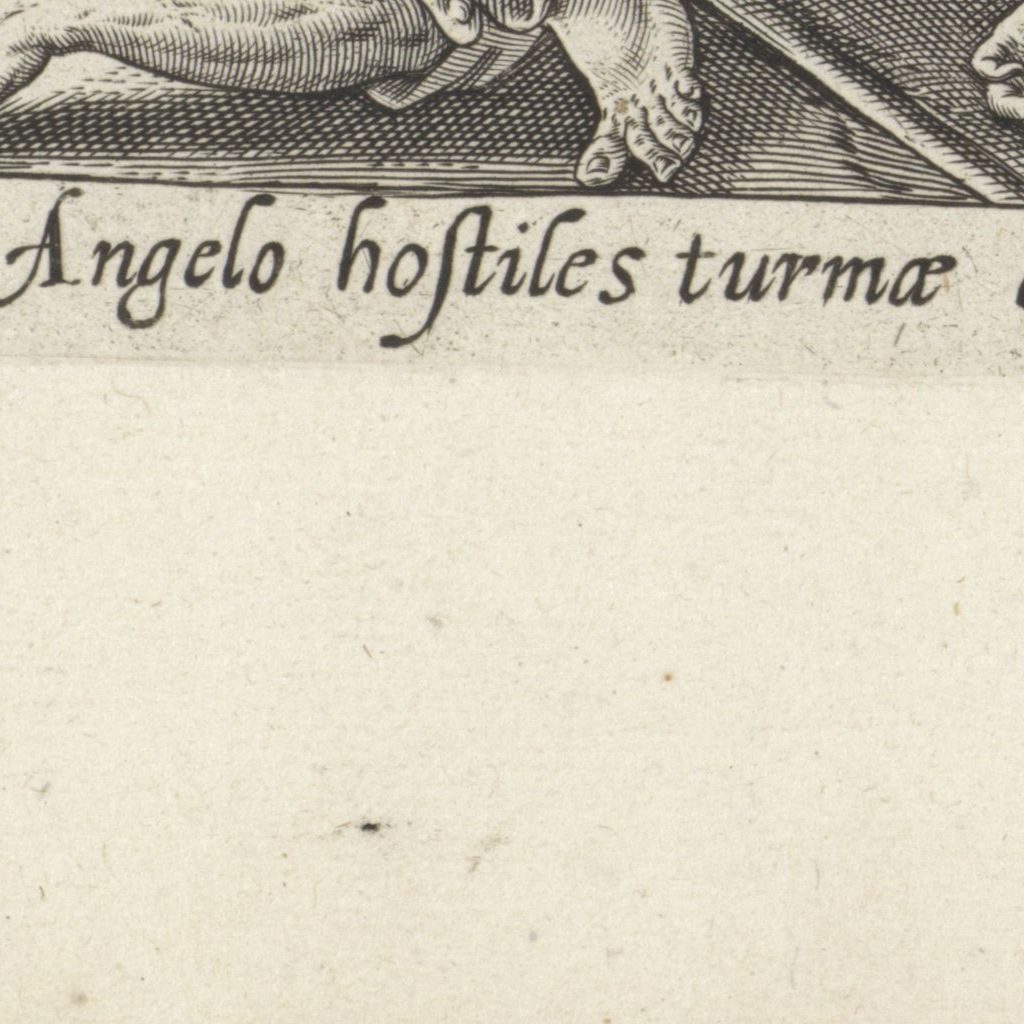 Angelo hoſtiles turmæ